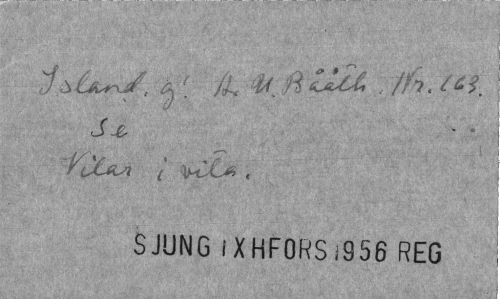 Island. g! A. U. Bååth. Nr. 163.
Se
Vilar i vita.
SJUNG IXHFORS 1956 REG